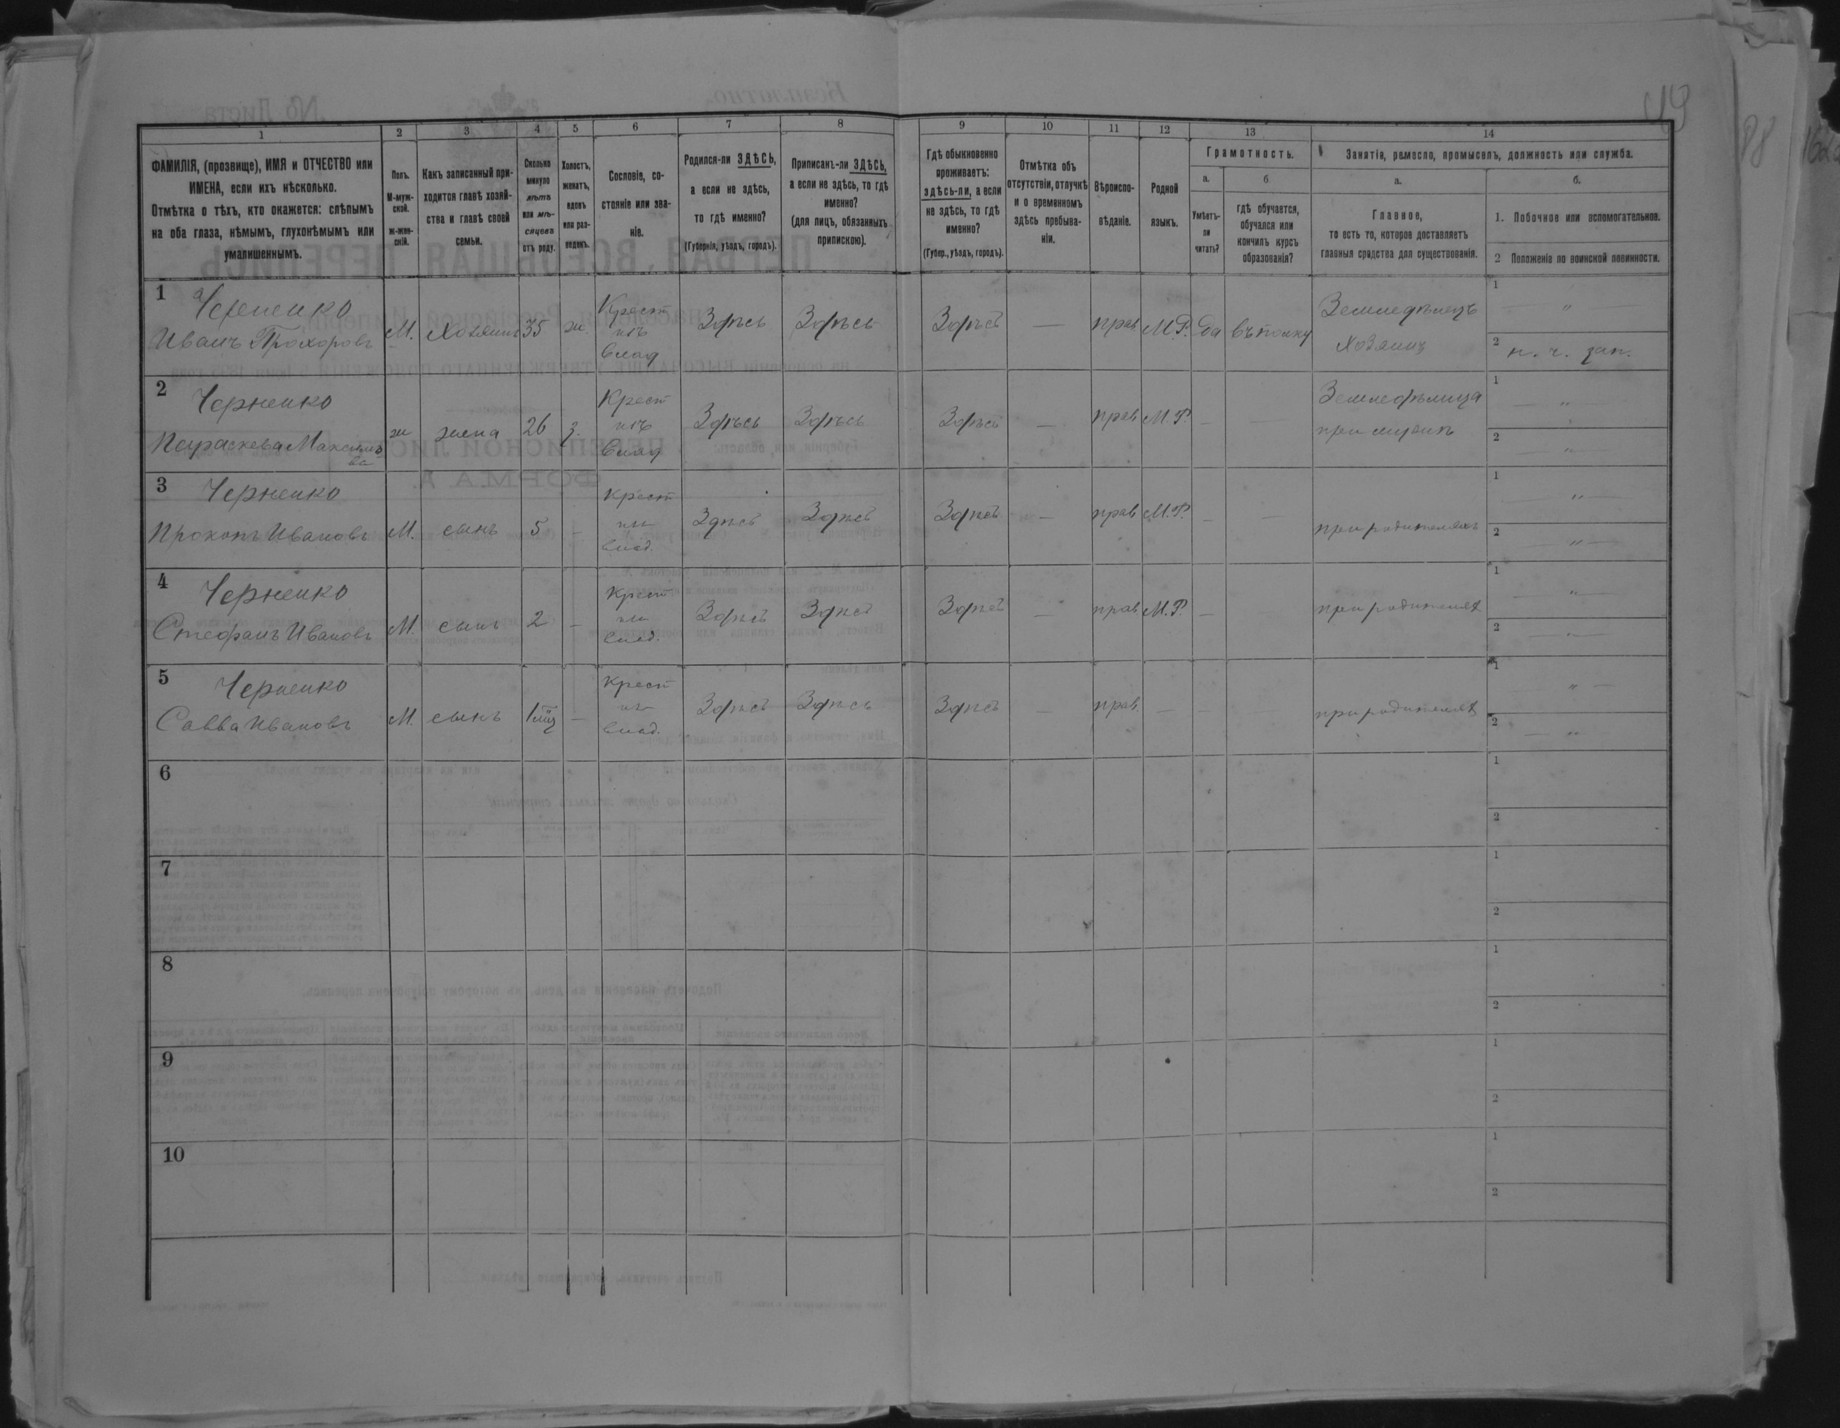 49
88
1 2 3 4 5 6 7 8 9 10 11 12 13 14
ФАМИЛІЯ, (прозвище), ИМЯ и ОТЧЕСТВО или ИМЕНА, если ихъ нѣсколько.
Отмѣтка о тѣхъ, кто окажется: слѣпымъ на оба глаза, нѣмымъ, глухонѣмымъ или умалишеннымъ.
Полъ. М-муж-ской. Ж-жен-скій.
Какъ записанный при-ходится главѣ хозяй-ства и главѣ своей семьи.
Сколько минуло лѣтъ или мѣ-сяцевъ отъ роду.
Холостъ, женатъ, вдовъ или раз-веденъ.
Сословіе, со-стояніе или зва-ніе.
Родился-ли ЗДѢСЬ, а если не здѣсь, то гдѣ именно? (Губернія, уѣздъ, городъ).
Приписанъ-ли ЗДѢСЬ, а если не здѣсь, то гдѣ именно? (для лицъ, обязанныхъ припискою).
Гдѣ обыкновенно проживаетъ: здѣсь-ли, а если не здѣсь, то гдѣ именно? (Губер., уѣздъ, городъ).
Отмѣтка объ отсутствіи, отлучкѣ и о временномъ здѣсь пребыва-ніи.
Вѣроиспо-вѣданіе.
Родной языкъ.
Грамотность.
а. Умѣетъ-ли читать?
б. гдѣ обучается, обучался или кончилъ курсъ образованія?
Занятія, ремесло, промыселъ, должность или служба.
а. Главное, то есть то, которое доставляетъ главныя средства для существованія.
б. 1. Побочное или вспомогательное.
2 Положеніе по воинской повинности.
1 Черненко
Иванъ Прохоровъ М. Хозяинъ 35 ж Крест изъ влад Здѣсь Здѣсь Здѣсь — прав М.Р. Да въ полку Земледѣлецъ хозяинъ 1 — „ — 2 н. ч. зап.
2 Черненко
Параскева Максимова ж жена 26 з. Крест изъ влад Здѣсь Здѣсь Здѣсь — прав М.Р. — — Земледѣлица при мужѣ 1 — „ — 2 — „ —
3 Черненко
Прокопъ Ивановъ М. сынъ 5 — Крест изъ влад. Здѣсь Здѣсь Здѣсь — прав М.Р. — — при родителяхъ 1 — „ — 2 — „ —
4 Черненко
Стефанъ Ивановъ М. сынъ 2 — Крест изъ влад. Здѣсь Здѣсь Здѣсь — прав М.Р. — при родителях 1 — „ — 2 — „ —
5 Черненко
Савва Ивановъ М. сынъ Крест изъ влад. Здѣсь Здѣсь Здѣсь — прав — — при родителях 1 „ — 2 — „
6 1 2
7 1 2
8 1 2
9 1 2
10 1 2